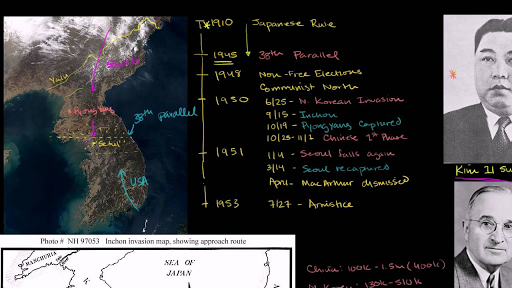 1910 Japanese Rule
1945 38th Parallel
1948 Non-Free Elections
Communist North
1950 6/25 - N. Korean Invasion
9/15 - Inchon
10/19 - Pyongyang Captured
10/25-11/2 Chinese 1st Phase
1951 1/4 - Seoul falls again
3/14 - Seoul recaptured
April - MacArthur dismissed
1953 7/27 - Armistice
Yalu
Pyongyang
38th parallel
Seoul
USA
Kim Il Su
Photo # NH 97053 Inchon invasion map, showing approach route
MANCHURIA
SEA OF
JAPAN
China: 100k - 1.5m (400k)